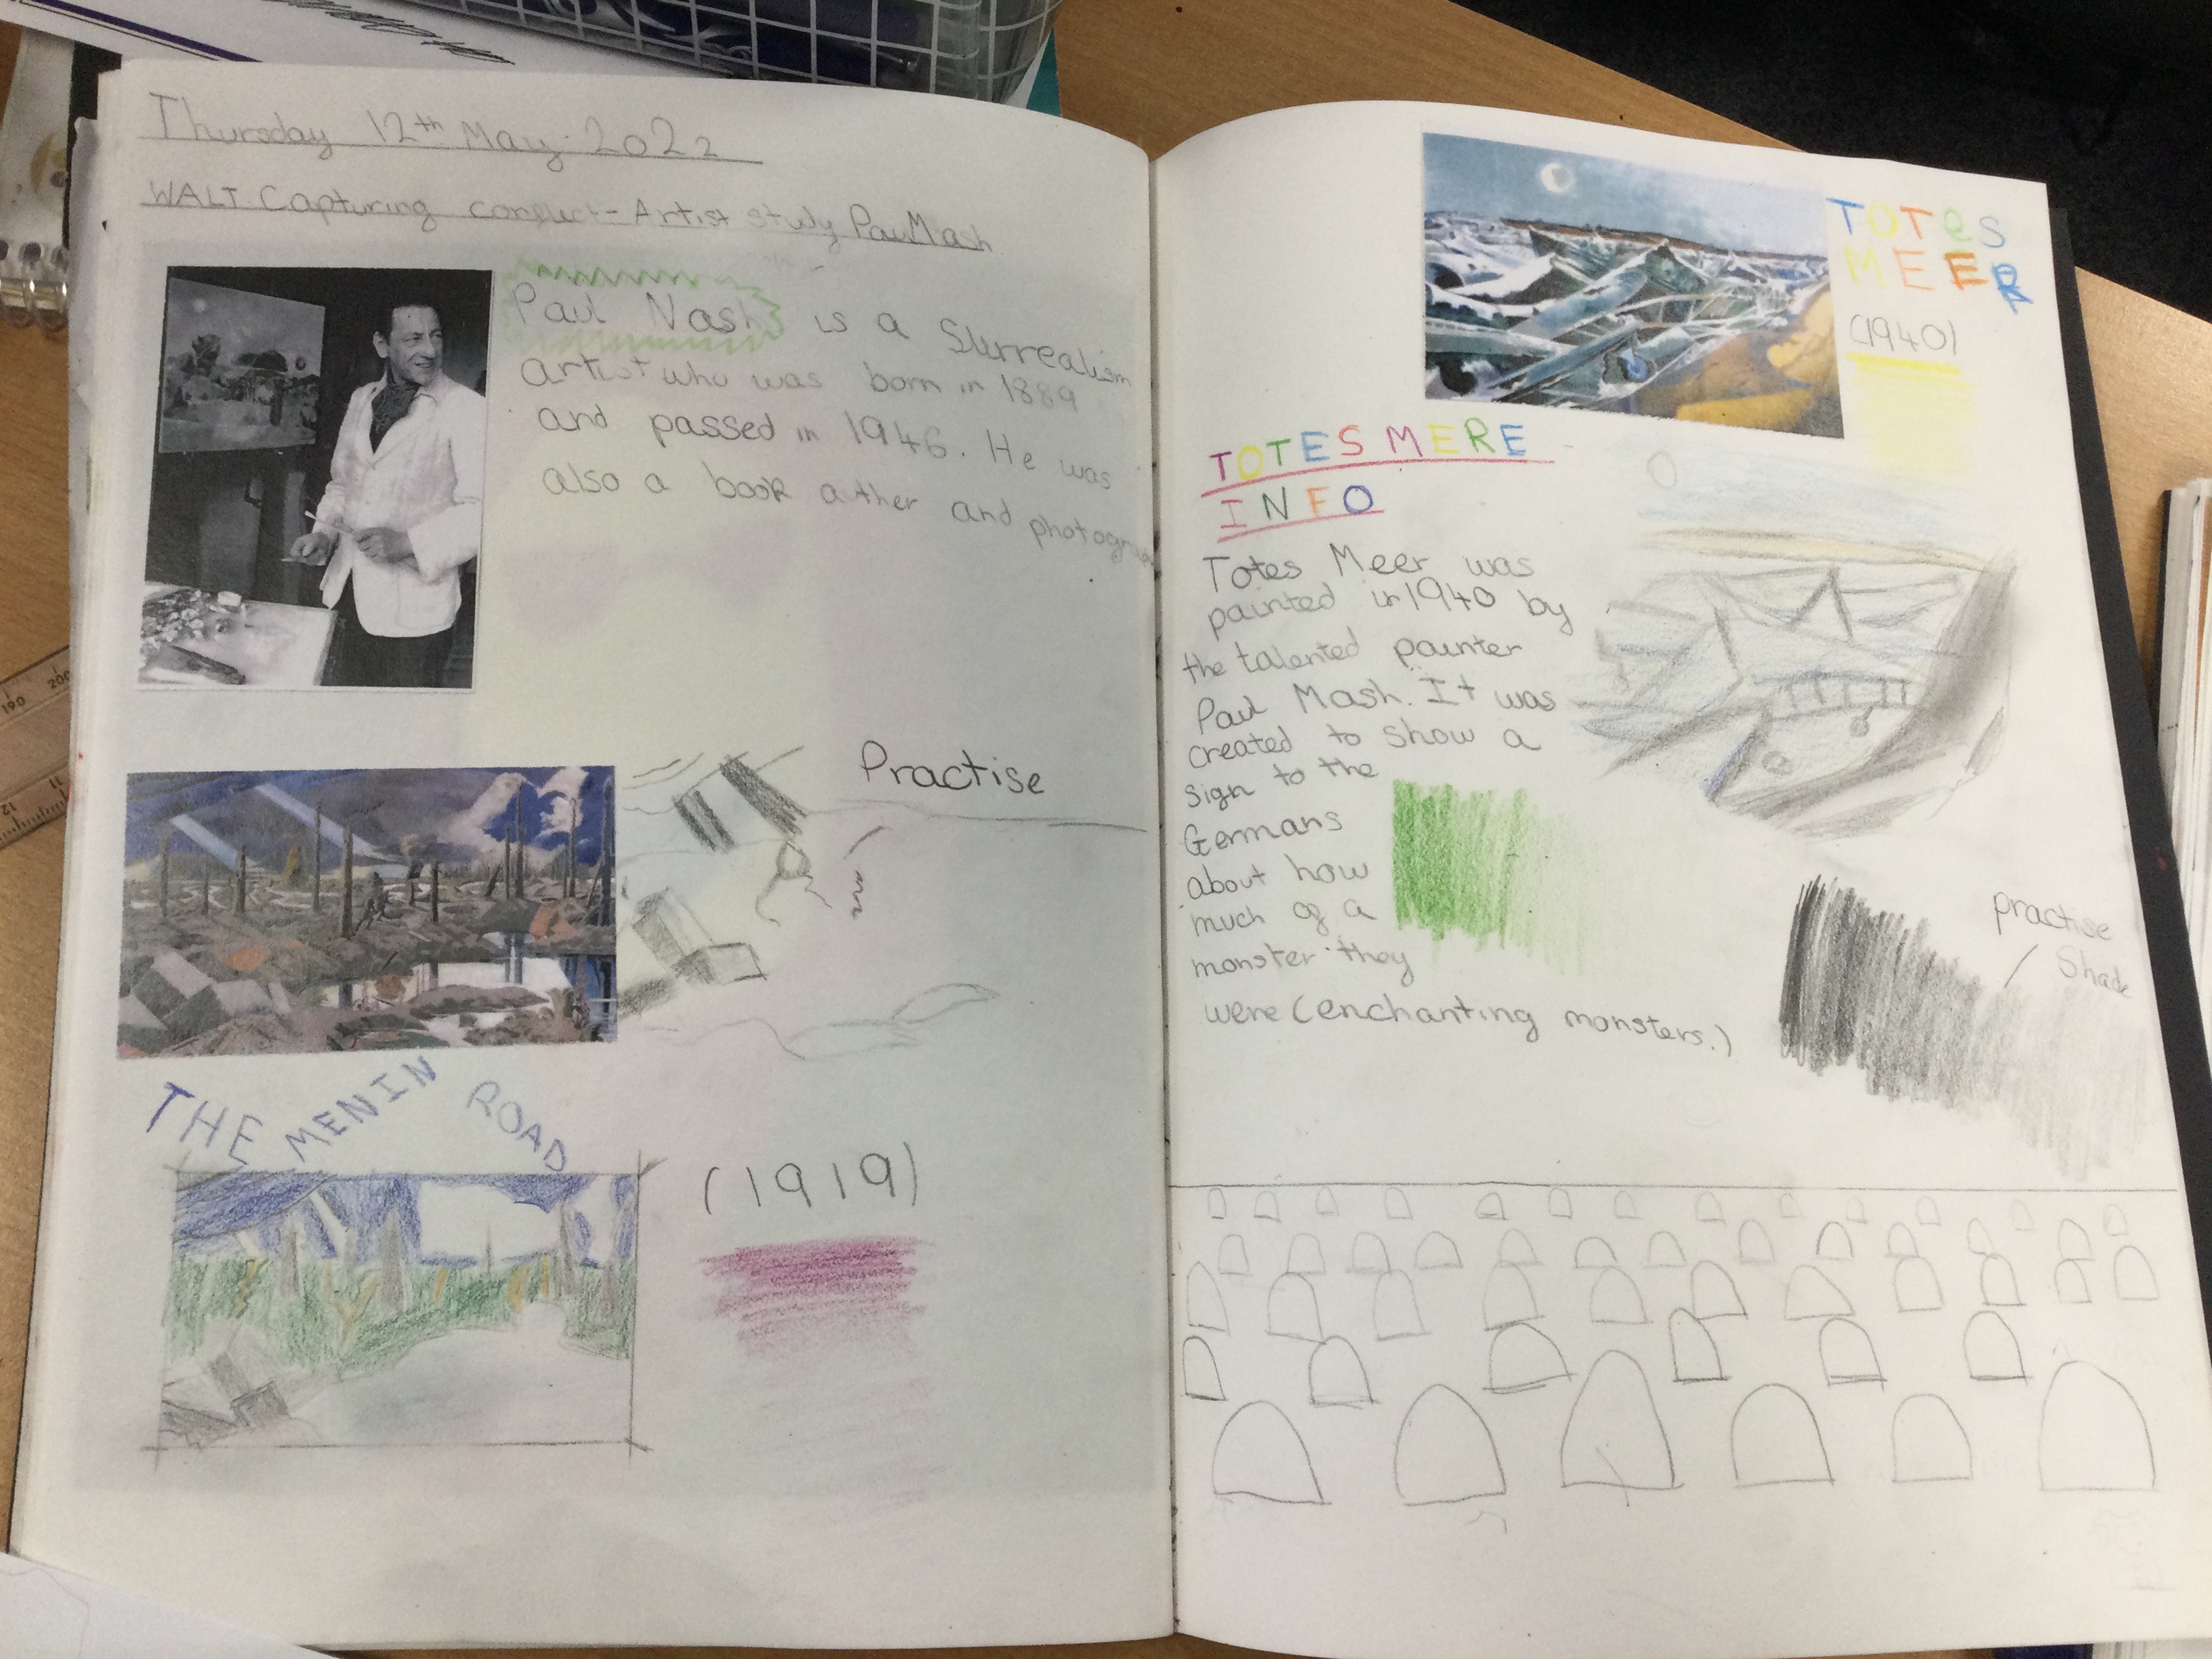 Thursday 12th May 2022
WALT Capturing conflict - Artist study Paul Mash
Paul Nash is a Slurrealism
artist who was born in 1889
and passed in 1946. He was
also a book auther and
Practise
THE MENIN ROAD
(1919)
TOTES
MEER
(1940)
TOTES MERE
INFO
Totes Meer was
painted in 1940 by
the talented painter
Paul Mash. It was
created to show a
sign to the
Germans
about how
much of a
monster they
were (enchanting monsters.)
practise
Shade
190
200
11
12